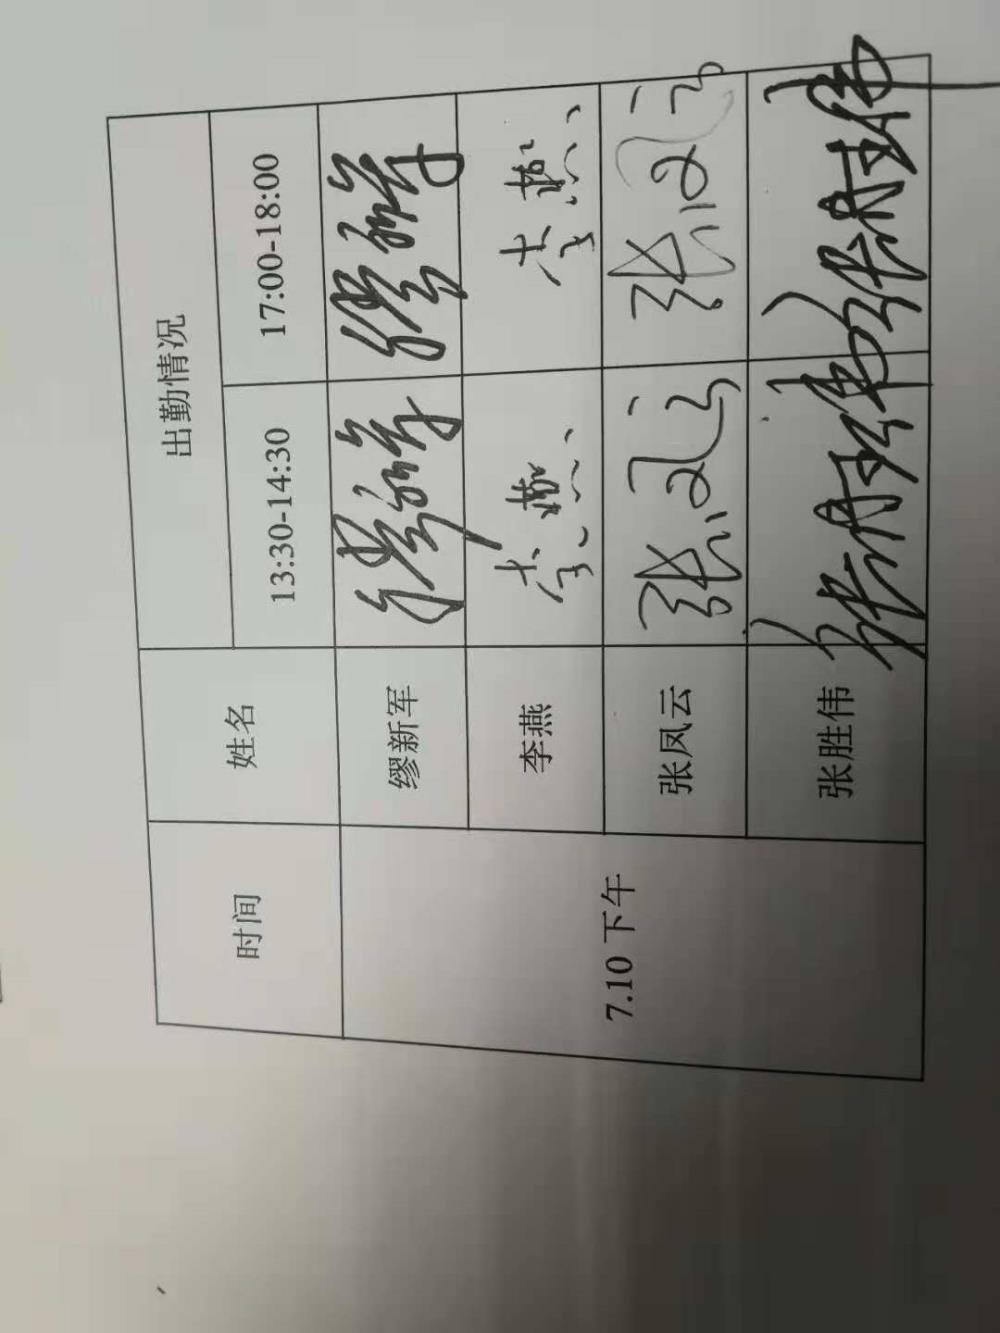 时间 姓名 出勤情况
13:30-14:30 17:00-18:00
7.10 下午
缪新军 缪新军 缪新军
李燕 李燕 李燕
张凤云 张凤云 张凤云
张胜伟 张胜伟 张胜伟